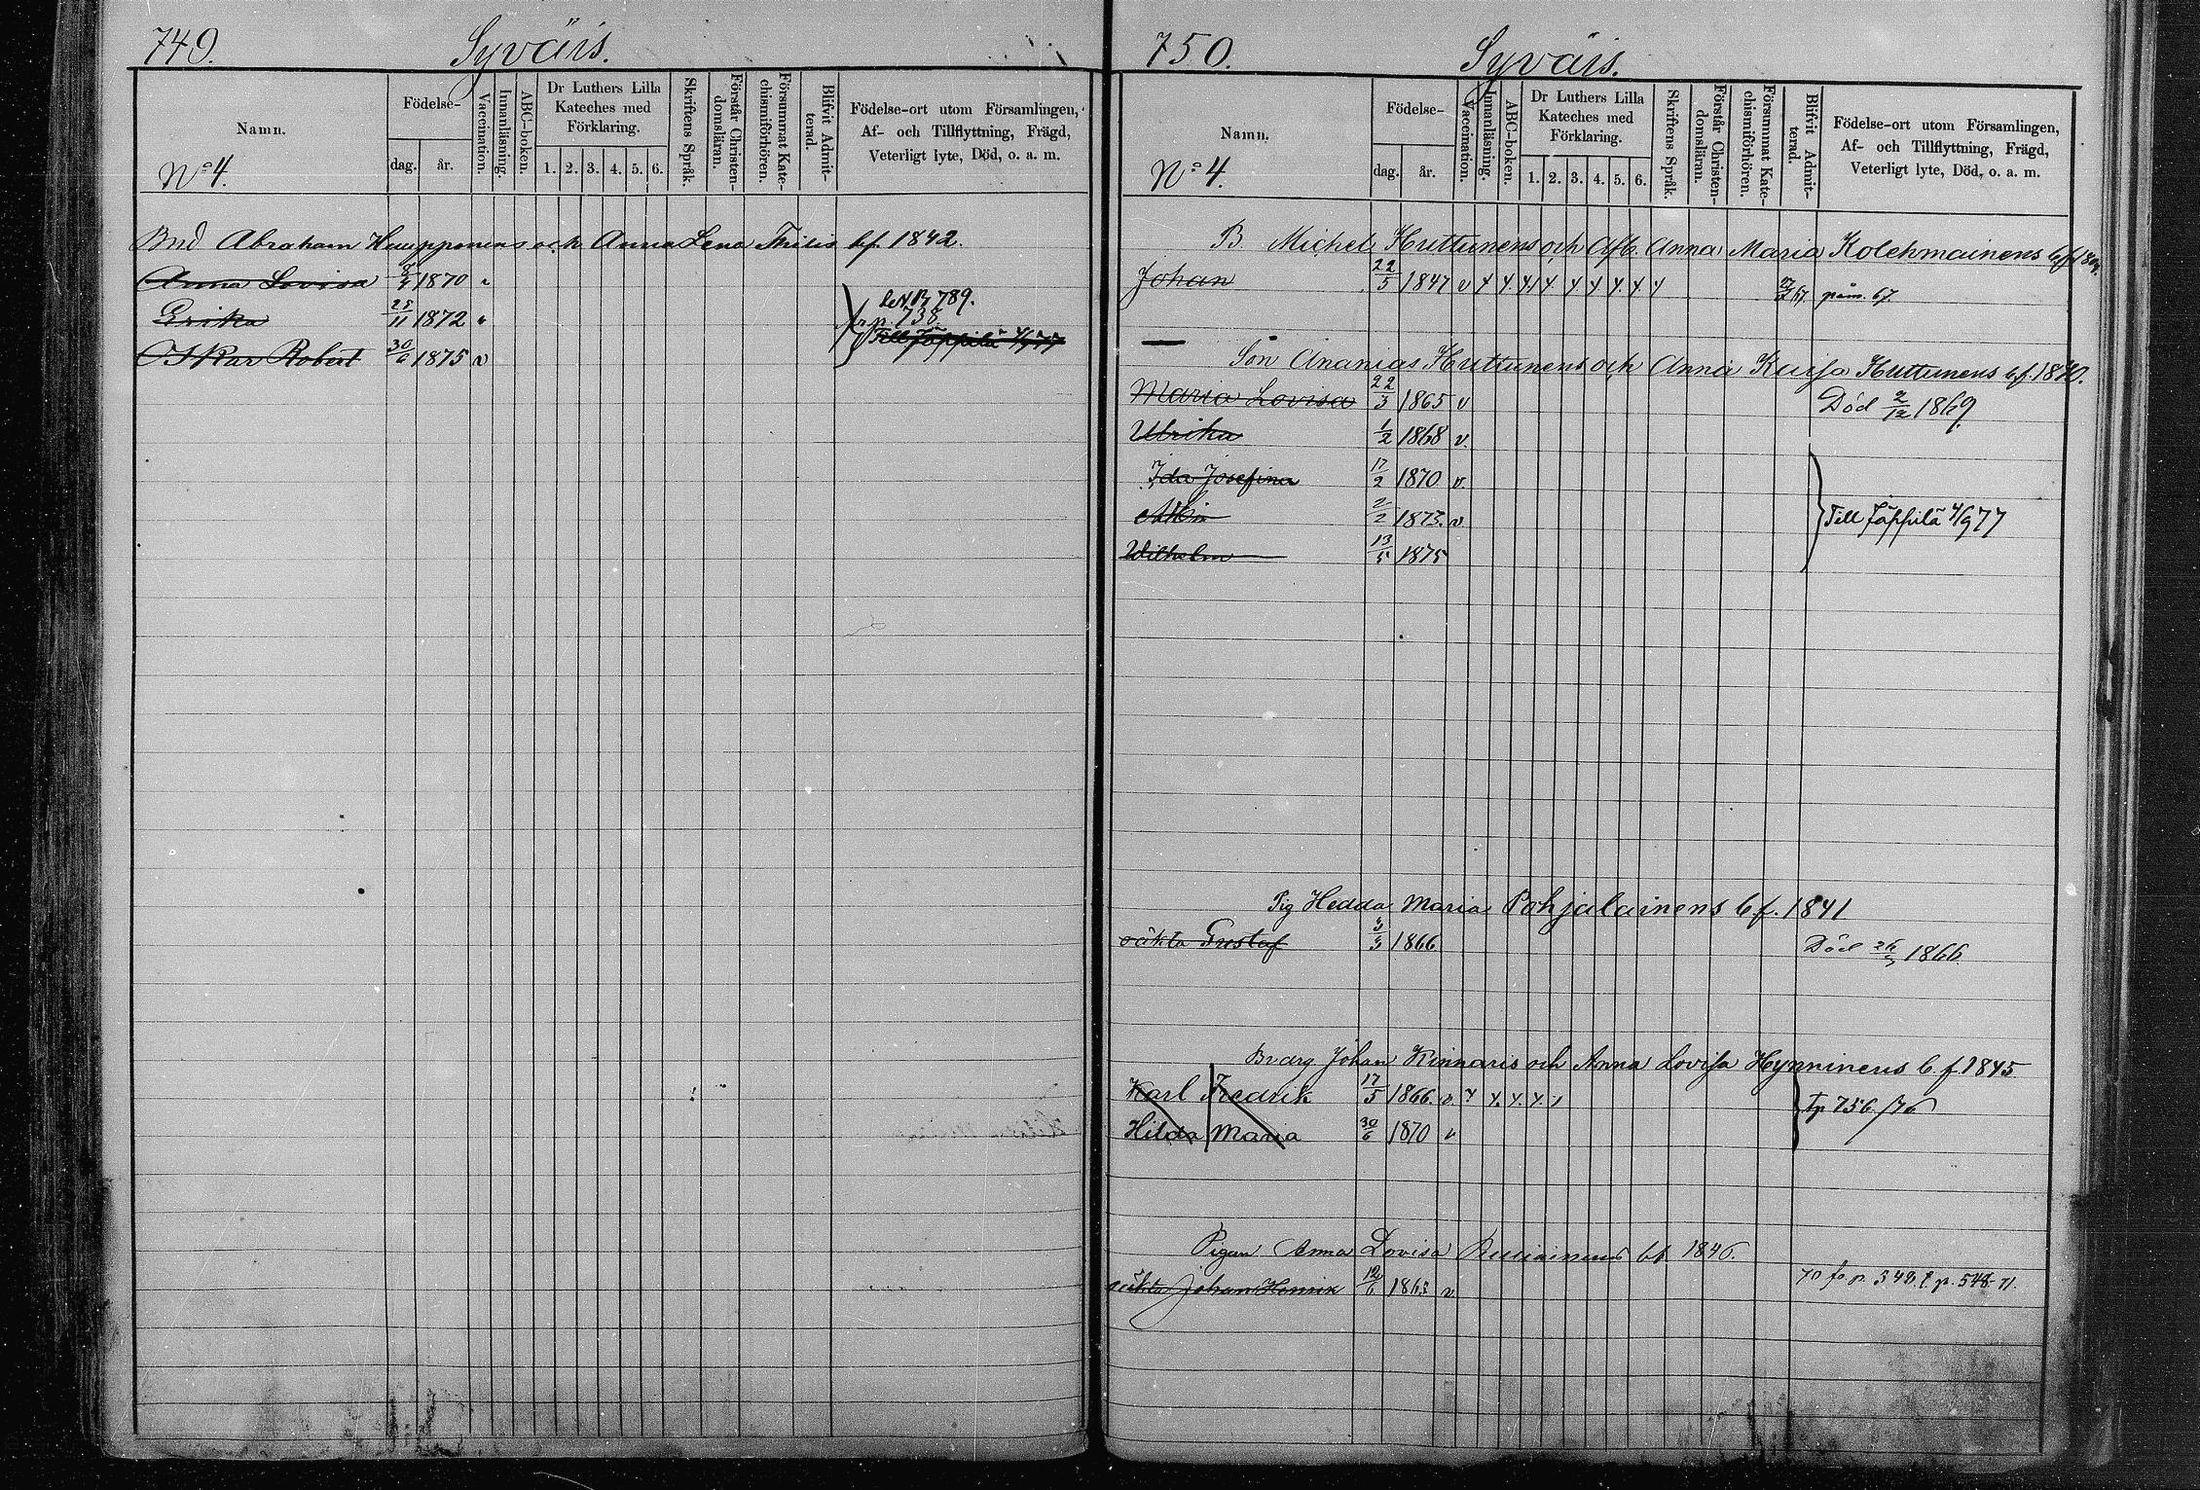 749.
Syväis.
Namn.
Födelse-
dag.
år.
Vaccination.
Innanläsning.
ABC-boken.
Dr Luthers Lilla
Kateches med
Förklaring.
1. 2. 3. 4. 5. 6.
Skriftens Språk.
Förstår Christen-
domsläran.
Försummat Kate-
chismiförhören.
Blifvit Admit-
terad.
Födelse-ort utom Församlingen,
Af- och Tillflyttning, Frägd,
Veterligt lyte, Död, o. a. m.
No 4.
Abraham Huupponens och Anna Lena bf. 1842.
Anna Lovisa 1870
789.
Erika 25/11 1872
p. 738
Till Jäppilä 4/9 77
Oskar Robert 30/6 1875 v
750.
Syväis.
Namn.
Födelse-
dag.
år.
Vaccination.
Innanläsning.
ABC-boken.
Dr Luthers Lilla
Kateches med
Förklaring.
1. 2. 3. 4. 5. 6.
Skriftens Språk.
Förstår Christen-
domsläran.
Försummat Kate-
chismiförhören.
Blifvit Admit-
terad.
Födelse-ort utom Församlingen,
Af- och Tillflyttning, Frägd,
Veterligt lyte, Död, o. a. m.
No 4.
B. Michel Huttunens och Anna Maria Kolehmainens
Johan 22/5 1847 v 67.
Son Ananias Huttunens och Anna Kaisa Huttunens bf. 1840.
Maria Lovisa 22/3 1865 v Död 2/12 1869
Ulrika 1/2 1868 v.
Ida Josefina 17/2 1870 v.
2/2 1873. v
Till Jäppilä 4/9 77
Wilhelm 13/5 1875
Pig Hedda Maria Pohjalainens bf. 1841
oäkta Gustaf 1866 Död 1866.
Johan Kinnaris och Anna Lovisa Hynninens b.f. 1845
Karl Fredrik 17/5 1866. v.
Tp 756 /76
Hilda Maria 30/6 1870 v
Pigan Anna Lovisa bf 1846.
oäkta Johan Henrik 12/6 1863 v.
70 fr. p. 348. t. p. 548-71.